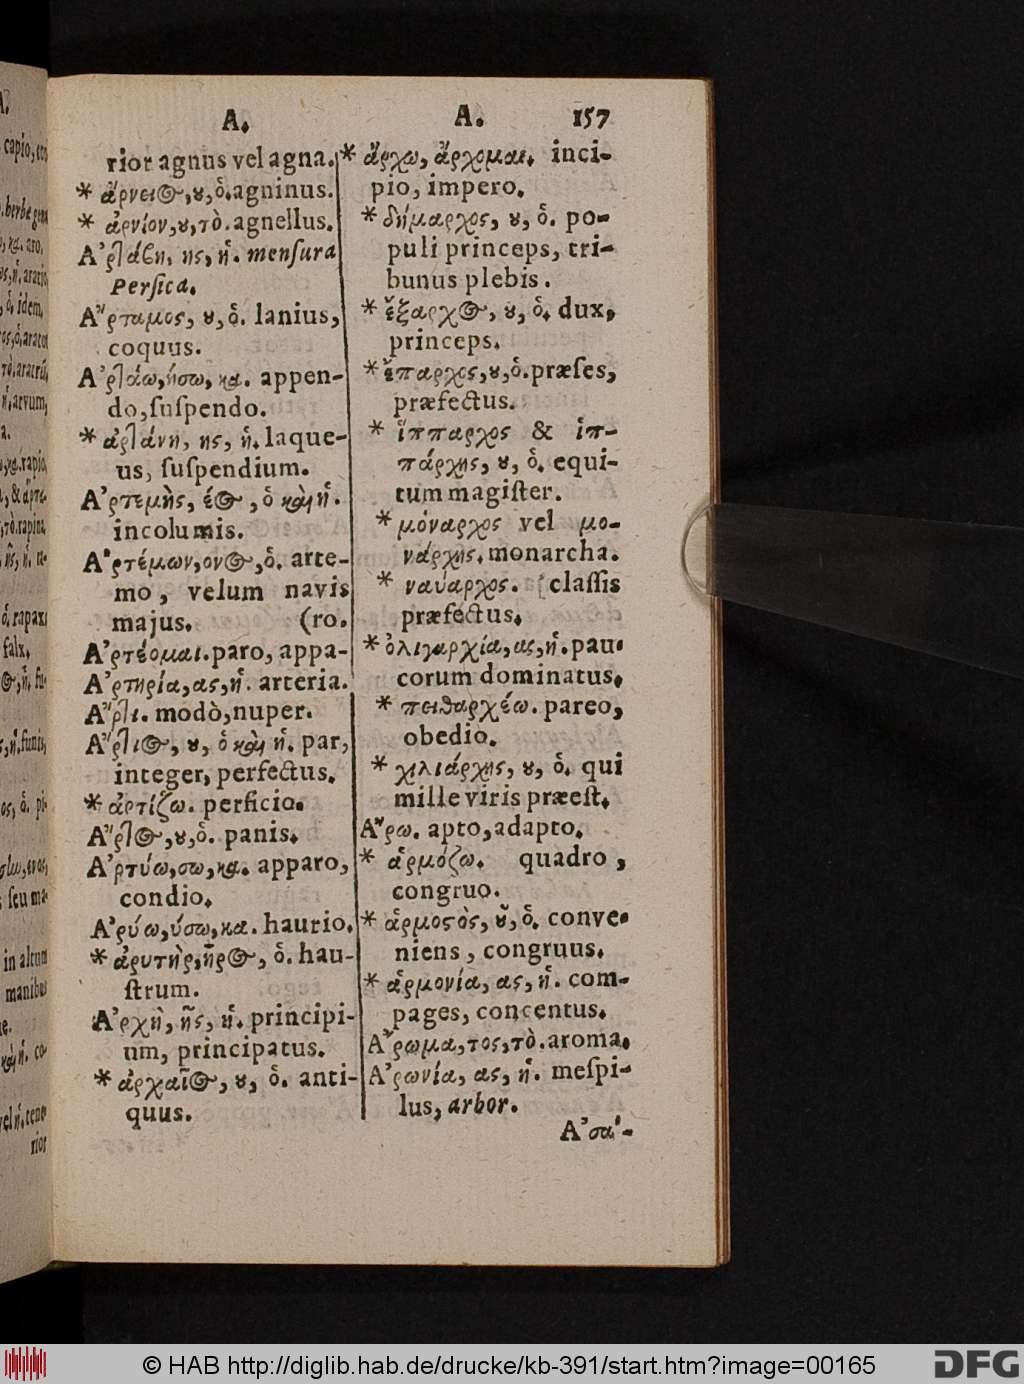 A.
rior agnus vel agna.
* ἄρνειος, ου, ὁ. agninus.
* ἀρνίον, ου, τὸ. agnellus.
Α᾿ρτάβη, ης, ἡ. menſura
Perſica.
Α῎ρταμος, ου, ὁ. lanius,
coquus.
Α᾿ρτάω, ήσω, κα. appen-
do, ſuſpendo.
* ἀρτάνη, ης, ἡ. laque-
us, ſuſpendium.
Α᾿ρτεμὴς, έος, ὁ καὶ ἡ.
incolumis.
Α᾿ρτέμων, ονος, ὁ. arte-
mo, velum navis
majus. (ro.
Α᾿ρτέομαι. paro, appa-
Α᾿ρτηρία, ας, ἡ. arteria.
Α῎ρτι. modò, nuper.
Α῎ρτιος, ου, ὁ καὶ ἡ. par,
integer, perfectus.
* ἀρτίζω. perficio.
Α῎ρτος, ου, ὁ. panis.
Α᾿ρτύω, σω, κα. apparo,
condio.
Α᾿ρύω, ύσω, κα. haurio.
* ἀρυτὴρ, ῆρος, ὁ. hau-
ſtrum.
Α᾿ρχὴ, ῆς, ἡ. principi-
um, principatus.
* ἀρχαῖος, ου, ὁ. anti-
quus.
A. 157
* ἄρχω, ἄρχομαι. inci-
pio, impero.
* δήμαρχος, ου, ὁ. po-
puli princeps, tri-
bunus plebis.
* ἔξαρχος, ου, ὁ. dux,
princeps.
* ἔπαρχος, ου, ὁ. præſes,
præfectus.
* ἵππαρχος & ἱπ-
πάρχης, ου, ὁ. equi-
tum magiſter.
* μόναρχος vel μο-
νάρχης. monarcha.
* ναύαρχος. claſſis
præfectus.
* ὀλιγαρχία, ας, ἡ. pau-
corum dominatus.
* πειθαρχέω. pareo,
obedio.
* χιλιάρχης, ου, ὁ. qui
mille viris præeſt.
Α῎ρω. apto, adapto.
* ἁρμόζω. quadro,
congruo.
* ἁρμοστὸς, οῦ, ὁ. conve-
niens, congruus.
* ἁρμονία, ας, ἡ. com-
pages, concentus.
Α῎ρωμα, τος, τὸ. aroma.
Α᾿ρωνία, ας, ἡ. meſpi-
lus, arbor.
Α᾿σα'-
© HAB http://diglib.hab.de/drucke/kb-391/start.htm?image=00165
DFG